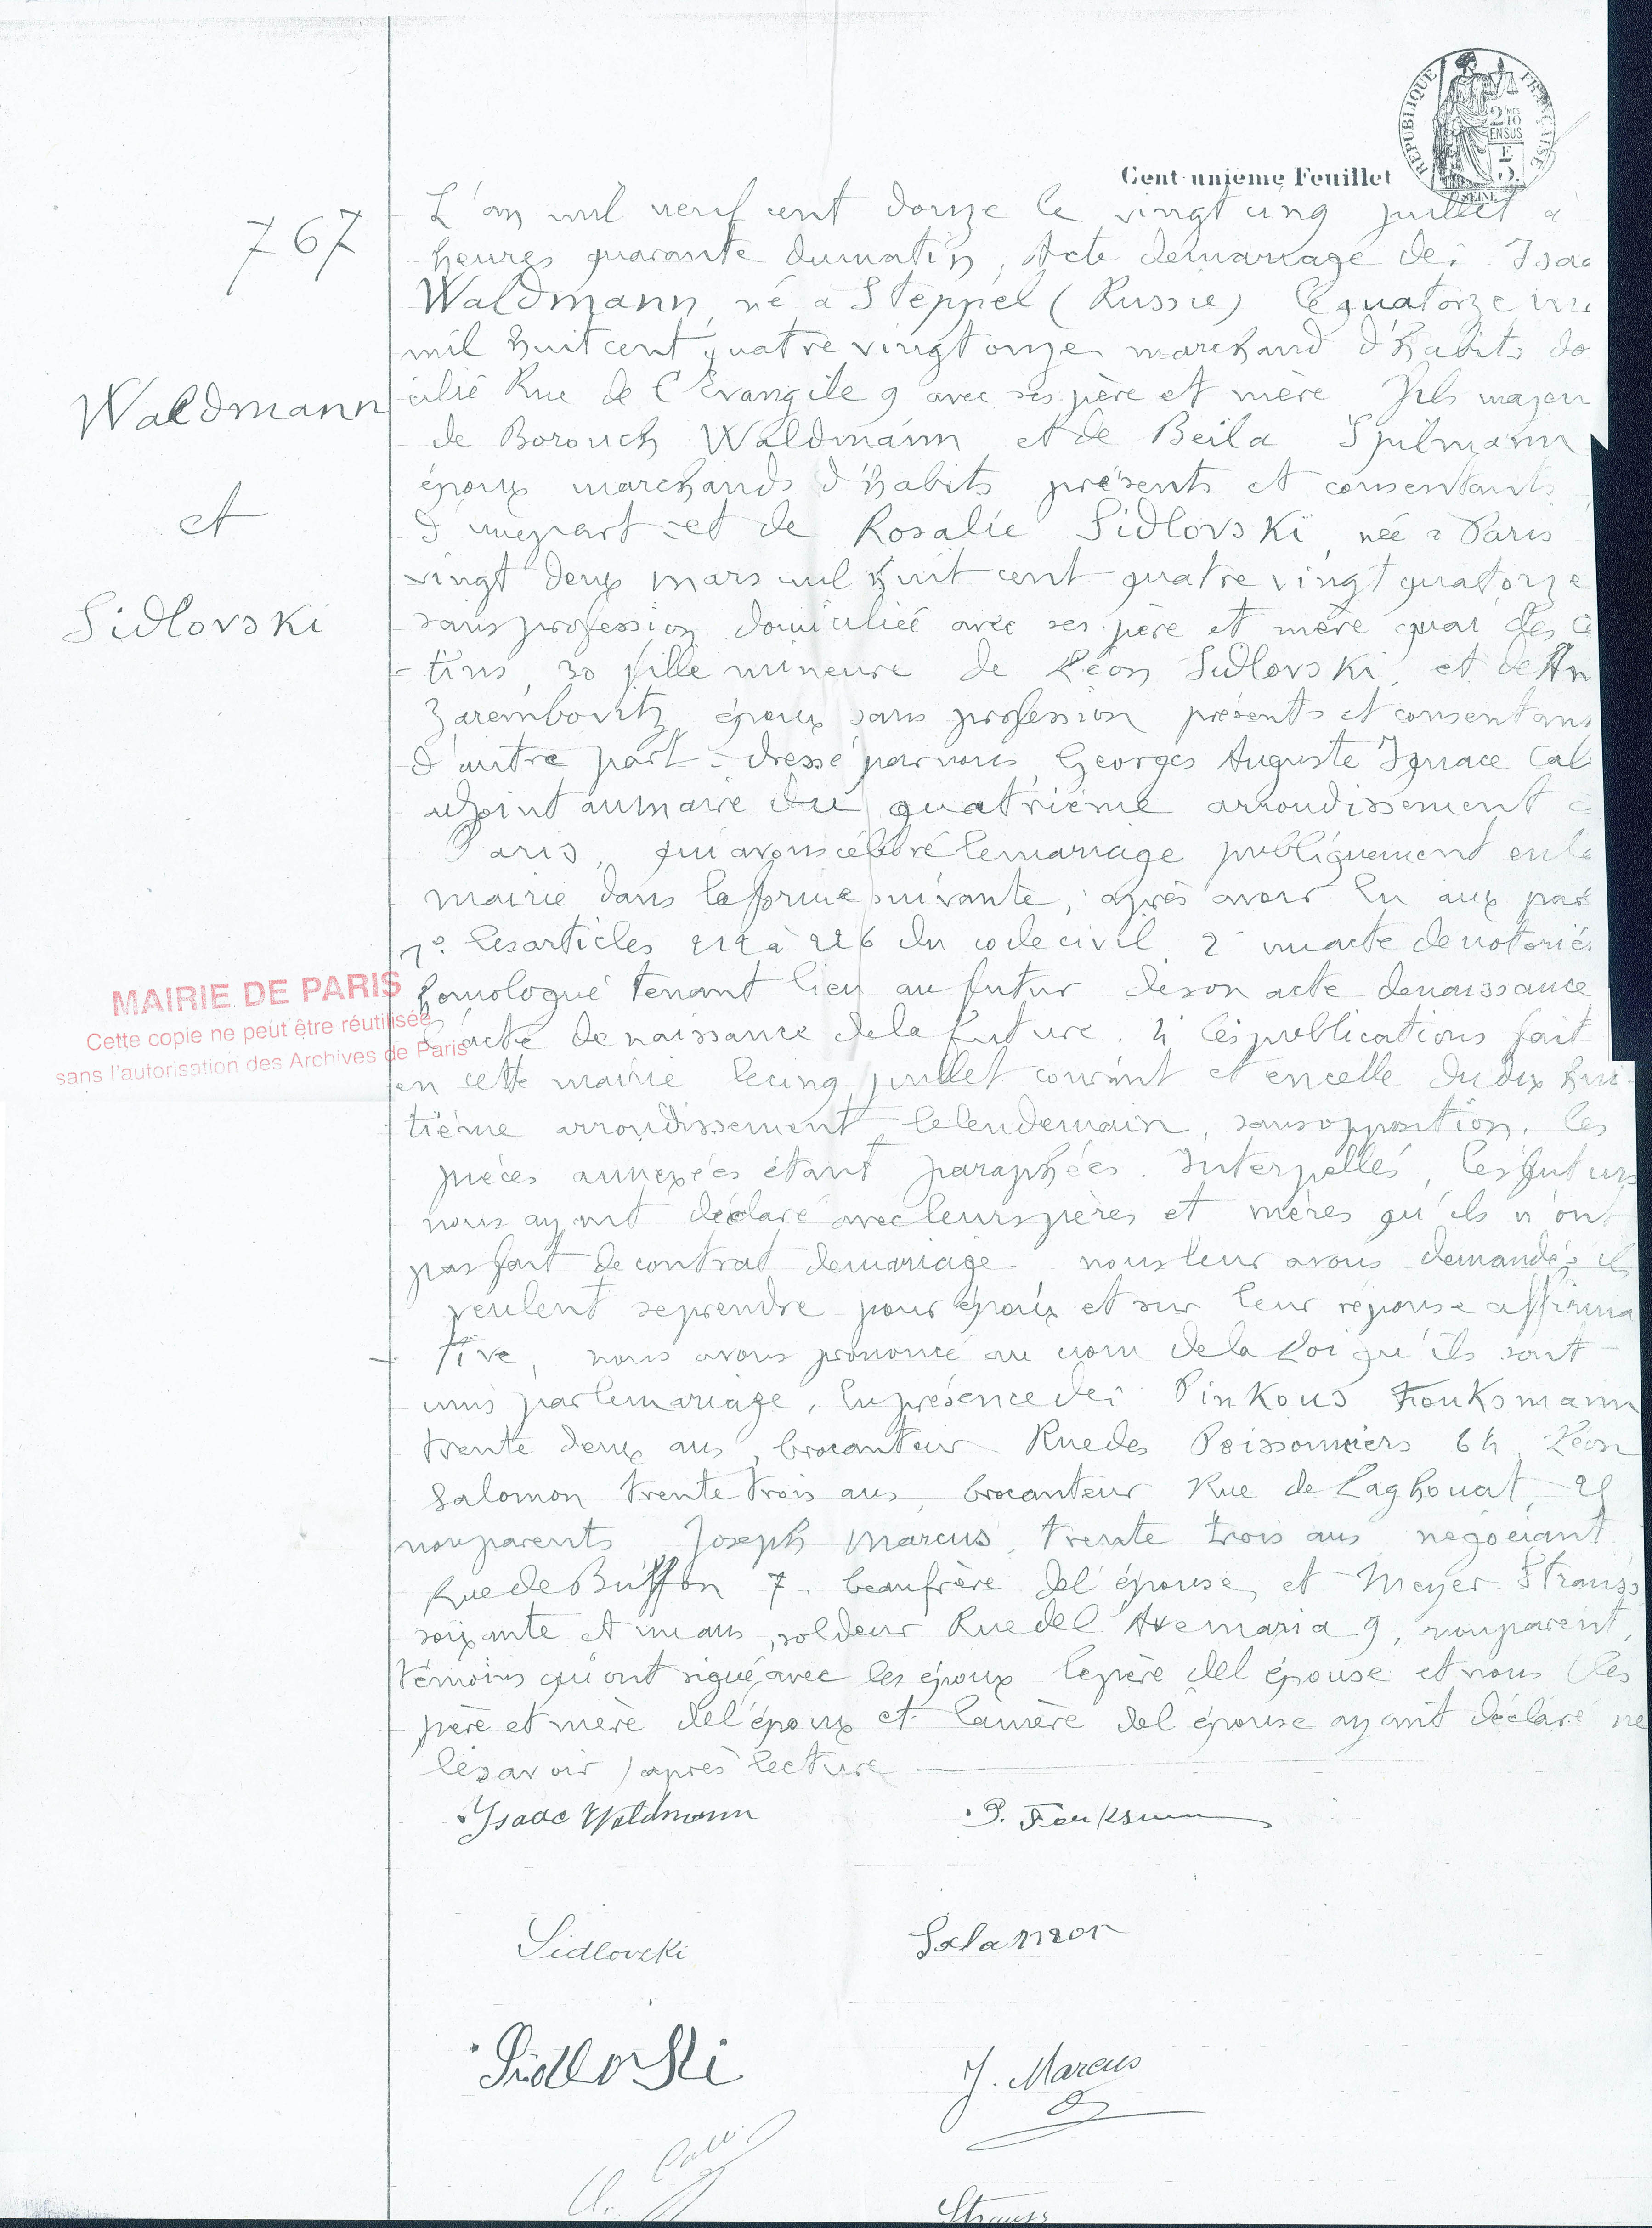 RÉPUBLIQUE FRANÇAISE
2 MES 10 EN SUS
SEINE
Cent-unième Feuillet
767
Waldmann
et
Sidlovski
L'an mil neuf cent douze le vingt cinq juillet à
heures quarante dumatin, Acte demariage de: Isaa
Waldmann, né à Steppel (Russie) le quatorze
mil huit cent quatre vingt onze marchand d'habits do
cilié Rue de l'Evangile 9 avec ses père et mère fils majeu
de Borouch Waldmann et de Beïla Spilmann
époux marchands d'habits présents et consentants
d'unepart - et de Rosalie Sidlovski, née à Paris
vingt deux mars mil huit cent quatre vingt quatorze
sans profession domiciliée avec ses père et mère quai des Cé
-tins, 30 fille mineure de Léon Sidlovski, et de An
Zarembovitz époux sans profession présents et consentans
d'autre part - dressé parnous, Georges Auguste Ignace Cal
adjoint aumaire du quatrième arrondissement
Paris, qui avons célébré lemariage publiquement en la
mairie dans la forme suivante, après avoir lu aux part
1º les articles 212 à 226 du code civil 2º un acte de notorié
homologué tenant lieu au futur de son acte de naissance
l'acte de naissance de la future. 4º les publications fait
en cette mairie le cinq juillet courant et en celle du dix hui-
tième arrondissement le lendemain, sans opposition, les
pièces annexées étant paraphées. Interpellés, les futurs
nous ayant déclaré avec leurs pères et mères qu'ils n'ont
pas fait de contrat demariage nous leur avons demandé s'ils
veulent se prendre pour époux et sur leur réponse affirma
tive, nous avons prononcé au nom de la Loi qu'ils sont
unis par le mariage, En présence de: Pinkous Fouksmann
trente deux ans, brocanteur Rue des Poissonniers 64, Léon
Salomon trente trois ans, brocanteur Rue de Laghouat,
non parents Joseph Marcus, trente trois ans négociant
Rue de Buffon 7. beaufrère de l'épouse, et Meyer Strauss
soixante et un ans, soldeur Rue de l'Ave maria 9, non parent,
témoins qui ont signé, avec les époux le père de l'épouse et nous (les
père et mère de l'époux et la mère de l'épouse ayant déclaré ne
le savoir) après lecture
MAIRIE DE PARIS
Cette copie ne peut être réutilisée
sans l'autorisation des Archives de Paris
Isaac Waldmann
P. Fouksmann
Sidlovski
Salomon
Sidlovski
J. Marcus
Strauss